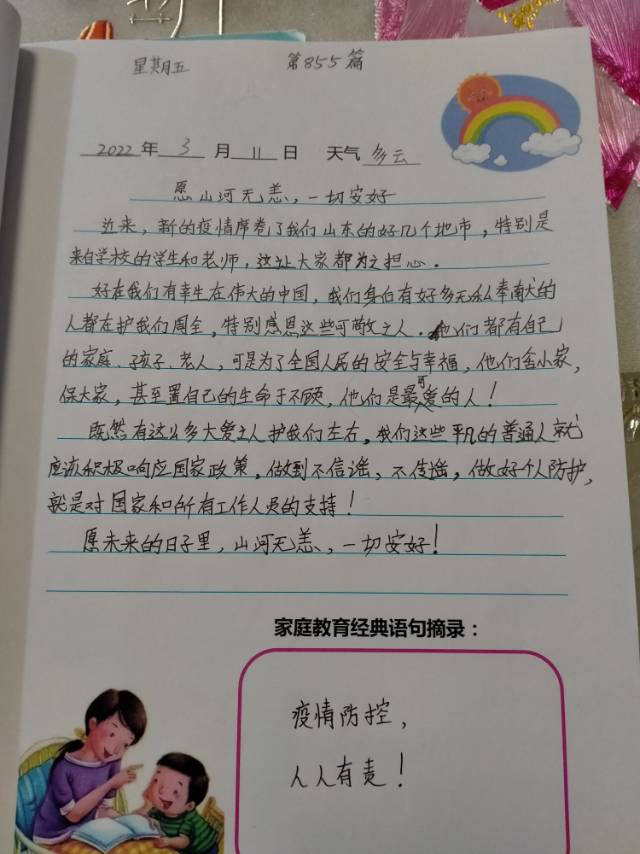 星期五 第855篇
2022年 3 月 11 日 天气 多云
愿山河无恙，一切安好
近来，新的疫情席卷了我们山东的好几个地市，特别是
来自学校的学生和老师，这让大家都为之担心。
好在我们有幸生在伟大的中国，我们身白有好多无私奉献的
人都在护我们周全，特别感恩这些可敬之人。他们都有自己
的家庭、孩子、老人，可是为了全国人民的安全与幸福，他们舍小家，
保大家，甚至置自己的生命于不顾，他们是最可爱的人！
既然有这么多大爱之人护我们左右，我们这些平凡的普通人就
应该积极响应国家政策，做到不信谣、不传谣，做好个人防护，
就是对国家和所有工作人员的支持！
愿未来的日子里，山河无恙，一切安好！
家庭教育经典语句摘录：
疫情防控，
人人有责！